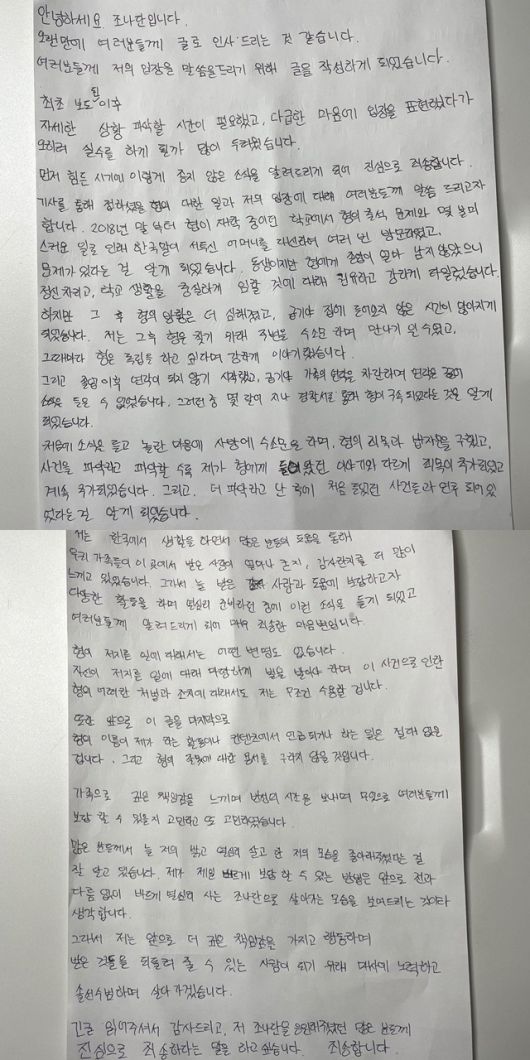 안녕하세요 조나단입니다.
오랜만에 여러분들께 글로 인사드리는 것 같습니다.
여러분들께 저의 입장을 말씀을드리기 위해 글을 작성하게 되었습니다.
최초 보도된 이후
자세한 상황 파악할 시간이 필요했고, 다급한 마음에 입장을 표현하였다가
오히려 실수를 하게 될까 많이 두려웠습니다.
먼저 힘든 시기에 이렇게 좋지 않은 소식을 알려드리게 되어 진심으로 죄송합니다.
기사를 통해 접하셨을 형에 대한 일과 저의 입장에 대해 여러분들께 말씀 드리고자
합니다. 2018년 말 부터 형이 재학 중이던 학교에서 형의 출석 문제와 몇 불미
스러운 일로 인해 한국말이 서툴신 어머니를 대신하여 여러 번 방문하였고,
문제가 있다는 걸 알게 되었습니다. 동생이지만 형에게 졸업이 얼마 남지 않았으니
정신 차리고, 학교 생활을 충실하게 임할 것에 대해 권유하고 강하게 타일렀습니다.
하지만 그 후 형의 방황은 더 심해졌고, 급기야 집에 들어오지 않은 시간이 많아지게
되었습니다. 저는 그 후 형을 찾기 위해 주변을 수소문 하며 만나기 일 수였고,
그때마다 형은 독립을 하고 싶다하며 강하게 이야기했습니다.
그리고 졸업 이후 연락이 되지 않기 시작했고, 급기야 가족의 연락을 차단하며 연락은 물론
소식을 들을 수 없었습니다. 그러던 중 몇 년이 지나 경찰서를 통해 형이 구속 되었다는 것을 알게
되었습니다.
처음에 소식을 듣고 놀란 마음에 사방에 수소문을 하며, 형의 죄목과 범죄를 구했고,
사건을 파악하고 파악할 수록 제가 형에게 들어왔던 이야기와 다르게 죄목이 추가되었고
계속 추가되었습니다. 그리고, 더 파악하고 난 후에 처음 들었던 사건들과 연루 되어 있
었다는 걸 알게 되었습니다.
저는 한국에서 생활을 하면서 많은 분들의 도움을 통해
우리 가족들이 이 곳에서 받은 사랑이 얼마나 큰지, 감사한지를 더 많이
느끼고 있었습니다. 그래서 늘 받은 사랑과 도움에 보답하고자
다양한 활동을 하며 열심히 준비하던 중에 이런 소식을 듣게 되었고
여러분들께 알려드리게 되어 매우 죄송한 마음뿐입니다.
형이 저지른 일에 대해서는 어떤 변명도 없습니다.
자신이 저지른 일에 대해 마땅하게 벌을 받아야 하며 이 사건으로 인한
형의 어떠한 처벌과 조치에 대해서도 저는 무조건 수용할 겁니다.
또한 앞으로 이 글을 마지막으로
형의 이름이 제가 하는 활동이나 컨텐츠에서 언급되거나 하는 일은 절대 없을
겁니다. 그리고 형의 잘못에 대한 용서를 구하지 않을 것입니다.
가족으로 깊은 책임감을 느끼며 반성의 시간을 보내며 무엇으로 여러분들께
보답 할 수 있을지 고민하고 또 고민하였습니다.
많은 분들께서 늘 저의 밝고 열심히 살고 한 저의 모습을 좋아해주셨다는 걸
잘 알고 있습니다. 제가 제일 빠르게 보답 할 수 있는 방법은 앞으로 전과
다름 없이 바르게 열심히 사는 조나단으로 살아가는 모습을 보여드리는 것이라
생각합니다.
그래서 저는 앞으로 더 깊은 책임감을 가지고 행동하며
받은 것들을 되돌려 줄 수 있는 사람이 되기 위해 매사에 노력하고
솔선수범하며 살아 가겠습니다.
긴글 읽어주셔서 감사드리고, 저 조나단을 응원해주셨던 많은 분들께
진심으로 죄송하다는 말을 하고 싶습니다. 죄송합니다.